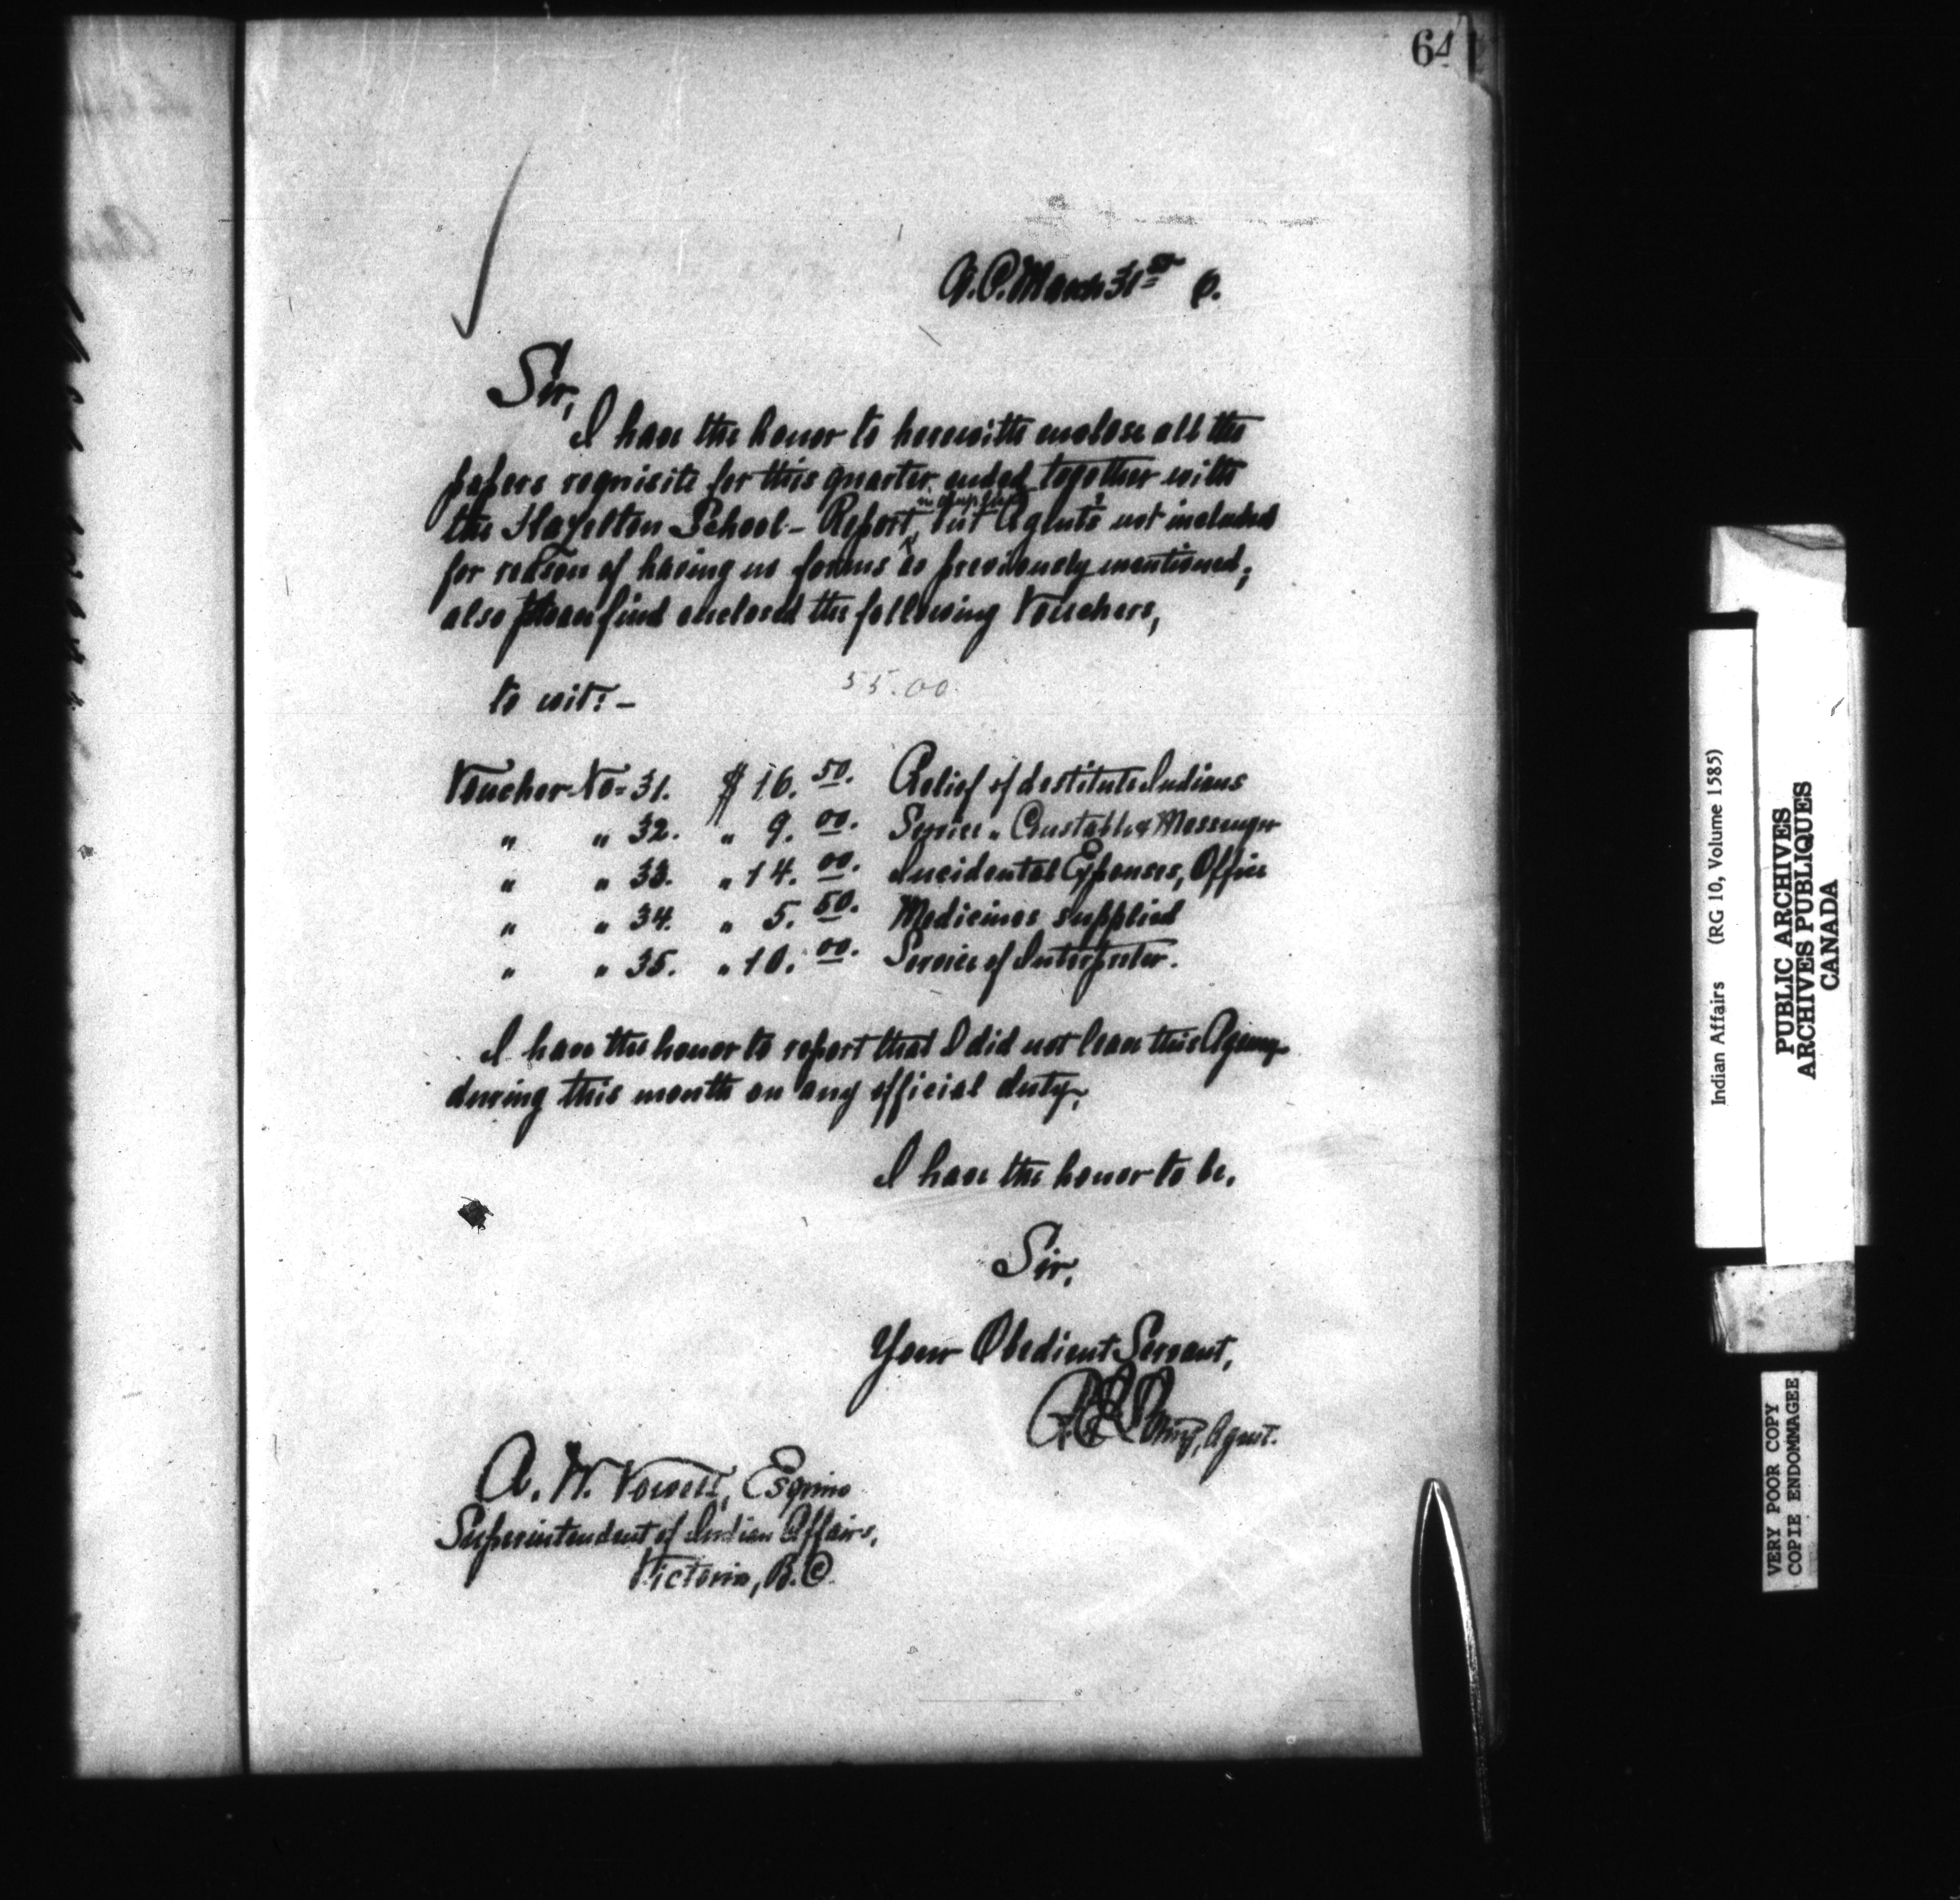 64
March 31st
Sir,
I have the honor to herewith enclose all the
papers requisite for this quarter ended together with
the Hazelton School - Report, but Agent's not included
for reason of having no forms as previously mentioned;
also please find enclosed the following Vouchers,
to wit: -
55.00
Voucher No 31. $ 16. 50. Relief of destitute Indians
" " 32. " 9. 00. Service " Constable & Messenger
" " 33. " 14. 00. Incidental Expenses, Office
" " 34. " 5. 50. Medicines supplied
" " 35. " 10. 00. Service of Interpreter.
I have the honor to report that I did not leave this Agency
during this month on any official duty.
I have the honor to be,
Sir,
Your Obedient Servant,
Agent.
A. W. Vowell, Esquire
Superintendent of Indian Affairs,
Victoria, B.C.
Indian Affairs (RG 10, Volume 1585)
PUBLIC ARCHIVES
ARCHIVES PUBLIQUES
CANADA
VERY POOR COPY
COPIE ENDOMMAGEE